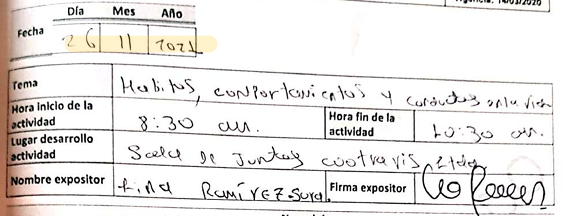 Vigencia: 14/03/2020
Día Mes Año
Fecha 26 11 2021
Tema Habitos, comportamientos y conductas en la via
Hora inicio de la actividad 8:30 am. Hora fin de la actividad 10:30 am.
Lugar desarrollo actividad Sala de Juntas
Nombre expositor Lina RAMÍREZ-Sura. Firma expositor